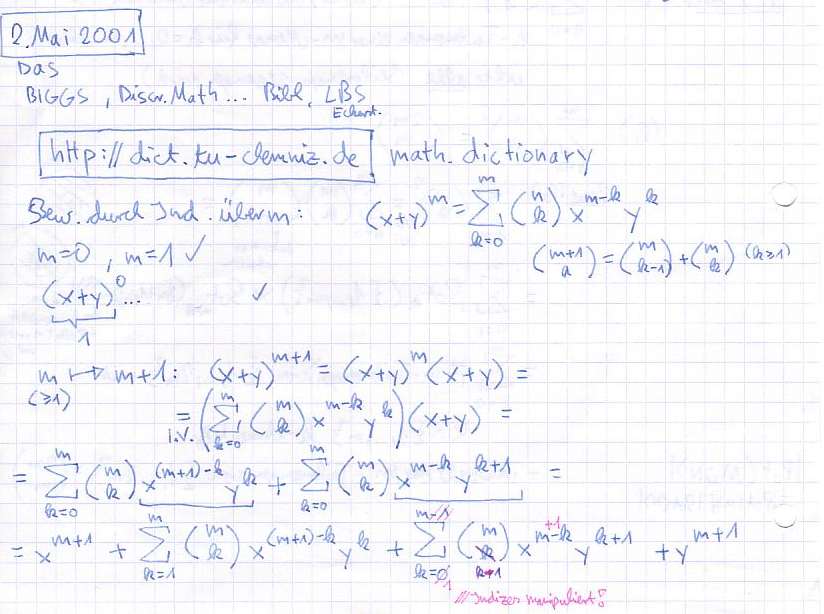 2. Mai 2001
Das
BIGGS, Discr. Math ... Bibl, LBS
http://dict.tu-chemniz.de math. dictionary
Bew. durch Ind. über m: (x+y)^m = \sum_{k=0}^{m} \binom{n}{k} x^{m-k} y^k
m=0, m=1 ✓ \binom{m+1}{k} = \binom{m}{k-1} + \binom{m}{k} (k≥1)
(x+y)^0 ... ✓
1
m ↦ m+1: (x+y)^{m+1} = (x+y)^m (x+y) =
(≥1)
= \left( \sum_{k=0}^{m} \binom{m}{k} x^{m-k} y^k \right) (x+y) =
i.V.
= \sum_{k=0}^{m} \binom{m}{k} x^{(m+1)-k} y^k + \sum_{k=0}^{m} \binom{m}{k} x^{m-k} y^{k+1} =
= x^{m+1} + \sum_{k=1}^{m} \binom{m}{k} x^{(m+1)-k} y^k + \sum_{k=0}^{m-1} \binom{m}{k} x^{m-k} y^{k+1} + y^{m+1}
1 k-1 +1
// Indizes manipuliert!